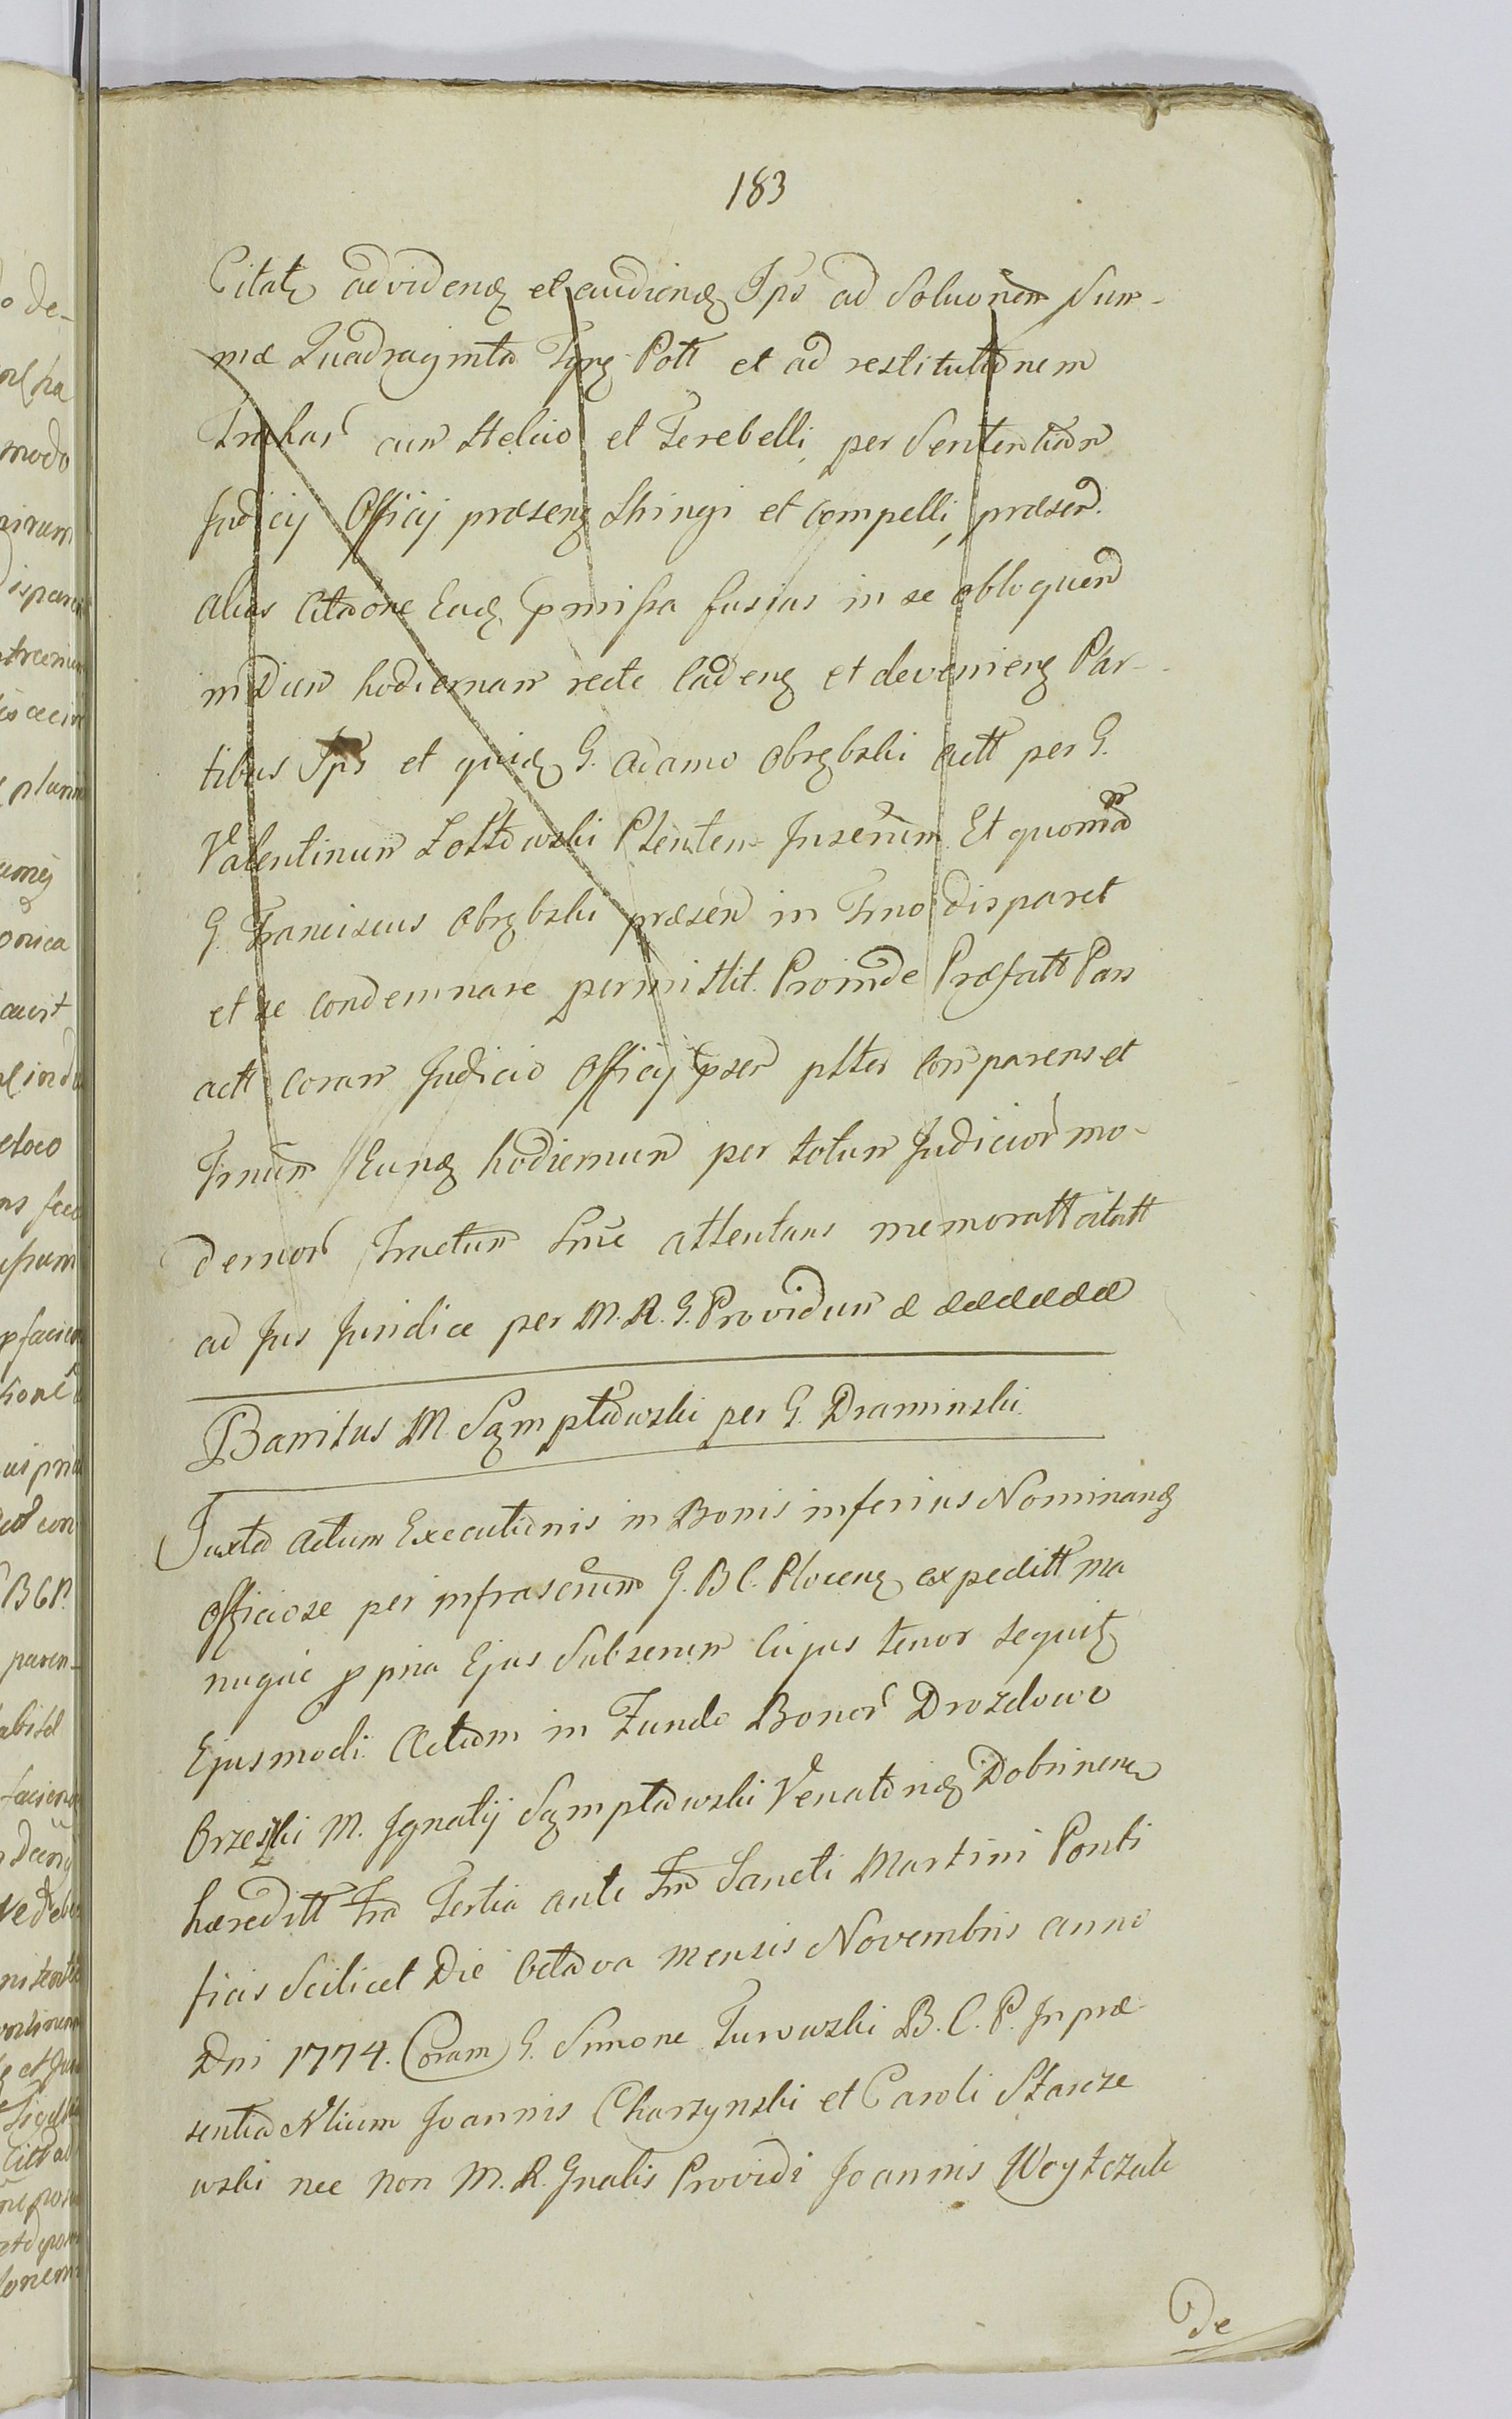 183
Citatq ad videnq et audienq Ips ad Soluonem Sum-
mæ Quadraginta Tynf Poll et ad restitutionem
Trahar cum Helcio et Terebelli per Sententiam
Judicij Officij præsenq Stringi et compelli, præsen.
alias Citaone Eadq pmissa fusius in se obloquen
in Diem hodiernam recte Cadenq et devenienq Par-
tibus Ips et quidq G. Adamo Obrębski actt per G.
Valentinum Zołtowski Plenten- Insenum. Et quoniam
G. Franciscus Obrębski præsen in Tmo disparet
et se condemnare permittit. Proinde Præfatt Pars
actt coram Judicio Officij psen pltter Comparens et
Tmnum Eunq hodiernum per totum Judicior mo-
dernor Tractum Tme attentans memoratt citatt
ad Jus Juridice per M. R. G. Providum &
Banitus M. Sąmpławski per G. Draminski
Juxta Actum Executionis in Bonis inferius Nominanq
Officiose per infrascrum G. B C. Plocenq expeditt ma
nuque ppria Ejus Subscrum Cujus tenor sequitq
Ejusmodi. Actum in Fundo Bonor Drozdowo
Orzeszki M. Ignatij Sąmpławski Venatoriq Dobrinenq
hæreditt Fra Tertia ante Fm Sancti Martini Ponti
ficis Scilicet Die Octava mensis Novembris anno
Dni 1774. Coram G. Simone Turowski B. C. P. In præ
sentia Nlium Joannis Charzynski et Caroli Starcze
wski nec non M. R. Gnalis Providi Joannis Woytczak
De